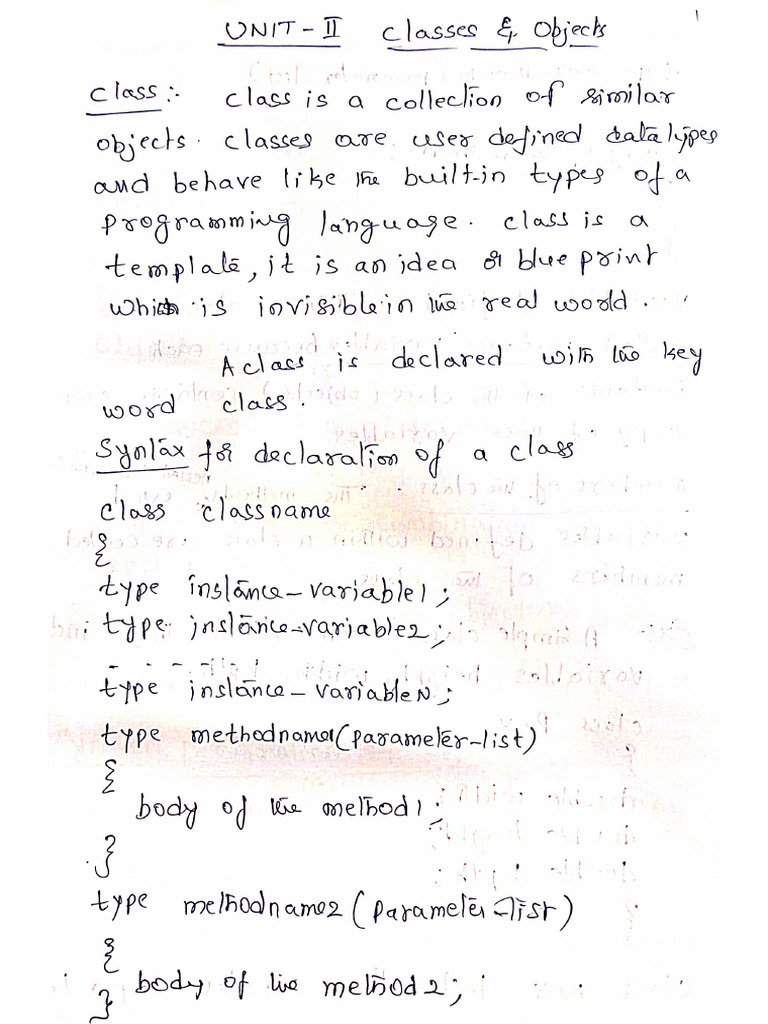 UNIT-II Classes & Objects 1
Class:- Class is a collection of similar
objects. Classes are user defined data types
and behave like the built-in types of a
programming language. Class is a
template, it is an idea or blue print
which is invisible in the real world.
A class is declared with the key
word class.
Syntax for declaration of a class
class classname
{
type instance-variable1;
type instance-variable2;
- - - - - -
type instance-variableN;
type methodname1(parameter-list)
{
body of the method1;
}
type methodname2(parameter-list)
{
body of the method2;
}